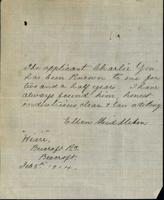 The applicant Charlie Yin
has been known to me for
two and a half years. I have
always found him, honest
industrious, clean & law abiding.
Ellen Middleton
"Weir",
Beecroft Rd.
Beecroft.
Feb 5th 1914.